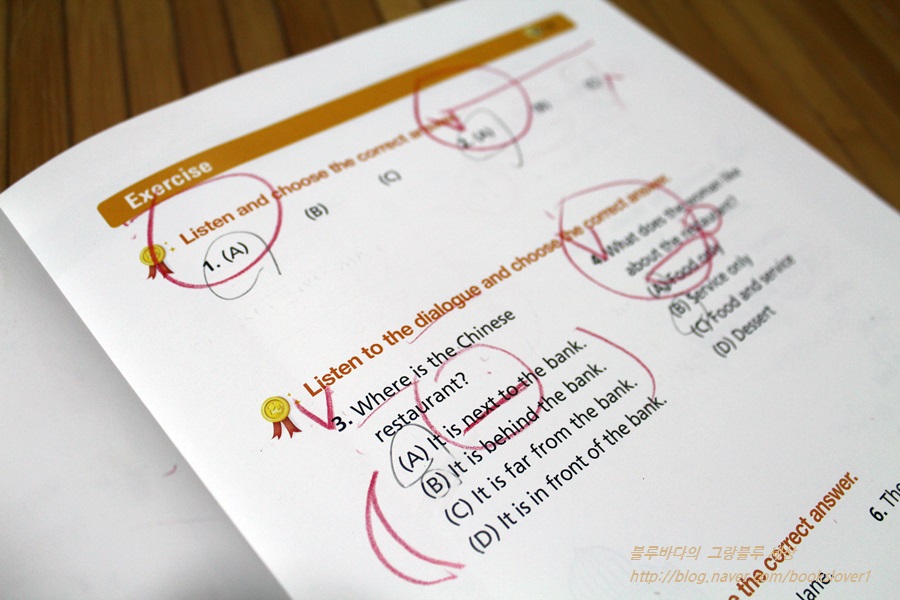 Exercise
Listen and choose the correct answer.
1. (A) (B) (C)
2. (A) (B) (C)
Listen to the dialogue and choose the correct answer.
3. Where is the Chinese
restaurant?
(A) It is next to the bank.
(B) It is behind the bank.
(C) It is far from the bank.
(D) It is in front of the bank.
4. What does the woman like
about the restaurant?
(A) Food only
(B) Service only
(C) Food and service
(D) Dessert
the correct answer.
6. The
블루바다의 그랑블루
http://blog.naver.com/bookclover1